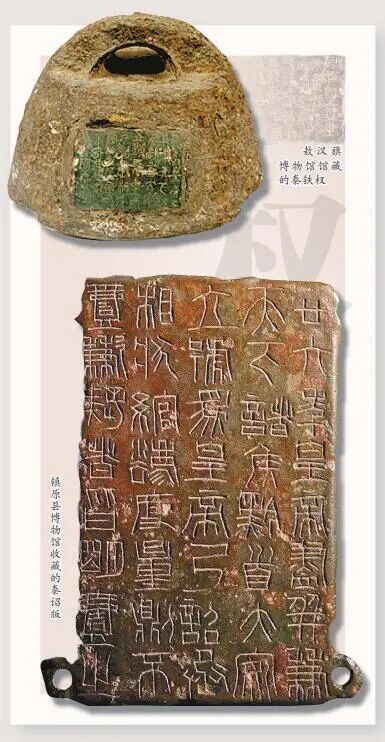 敖汉旗
博物馆馆藏
的秦铁权
廿六年皇帝盡并兼
天下諸矦黔首大安
立號爲皇帝乃詔丞
相狀綰灋度量則不
壹歉疑者皆明壹之
镇原县博物馆收藏的秦诏版